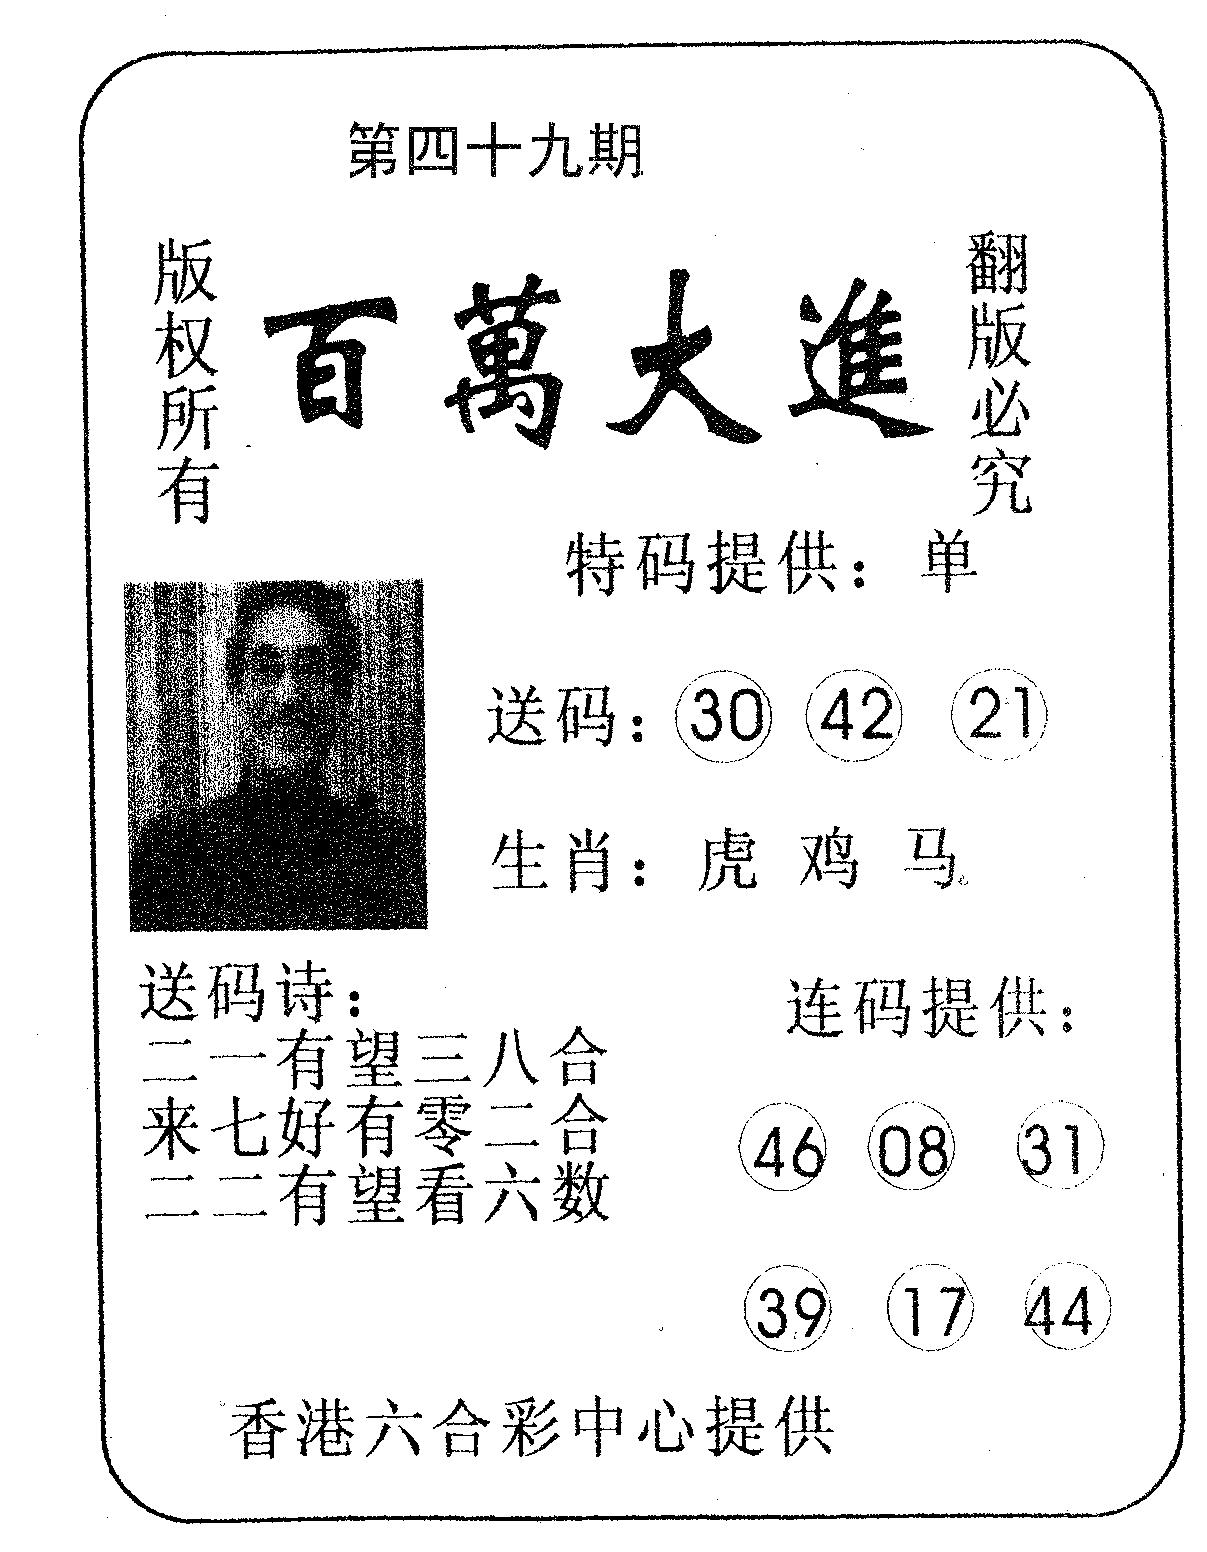 第四十九期
版权所有
百萬大進
翻版必究
特码提供：单
送码：30 42 21
生肖：虎 鸡 马
送码诗：
二一有望三八合
来七好有零二合
二二有望看六数
连码提供：
46 08 31
39 17 44
香港六合彩中心提供